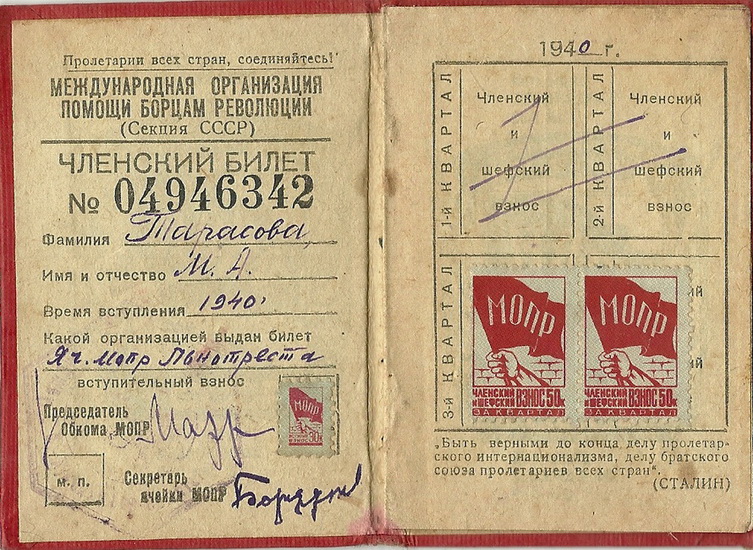 Пролетарии всех стран, соединяйтесь!
МЕЖДУНАРОДНАЯ ОРГАНИЗАЦИЯ
ПОМОЩИ БОРЦАМ РЕВОЛЮЦИИ
(Секция СССР)
ЧЛЕНСКИЙ БИЛЕТ
№ 04946342
Фамилия Тарасова
Имя и отчество М. А.
Время вступления 1940.
Какой организацией выдан билет
Яч. мопр Льнотреста
вступительный взнос
МОПР
30к
Председатель
Обкома МОПР
м. п.
Секретарь
ячейки МОПР
1940 г.
1-й КВАРТАЛ
Членский
и
шефский
взнос
2-й КВАРТАЛ
Членский
и
шефский
взнос
3-й КВАРТАЛ
МОПР
ЧЛЕНСКИЙ И ШЕФСКИЙ ВЗНОС 50к
ЗА КВАРТАЛ
МОПР
ЧЛЕНСКИЙ И ШЕФСКИЙ ВЗНОС 50к
ЗА КВАРТАЛ
„Быть верными до конца делу пролетар-
ского интернационализма, делу братского
союза пролетариев всех стран“.
(СТАЛИН)